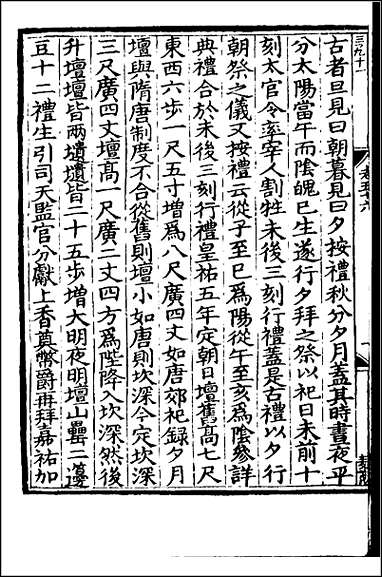 古者旦見曰朝暮見曰夕按禮秋分夕月蓋其時晝夜平
分太陽當午而陰魄已生遂行夕拜之祭以祀日未前十
刻太官令率宰人割牲未後三刻行禮蓋是古禮以夕行
朝祭之儀又按禮云從子至巳爲陽從午至亥爲陰參詳
典禮合於未後三刻行禮皇祐五年定朝日壇舊高七尺
東西六步一尺五寸增爲八尺廣四丈如唐郊祀録夕月
壇與隋唐制度不合從舊則壇小如唐則坎深今定坎深
三尺廣四丈壇高一尺廣二丈四方爲陛降入坎深然後
升壇壇皆兩壝壝皆二十五步增大明夜明壇山罍二籩
豆十二禮生引司天監官分獻上香奠幣爵再拜嘉祐加
三九十一